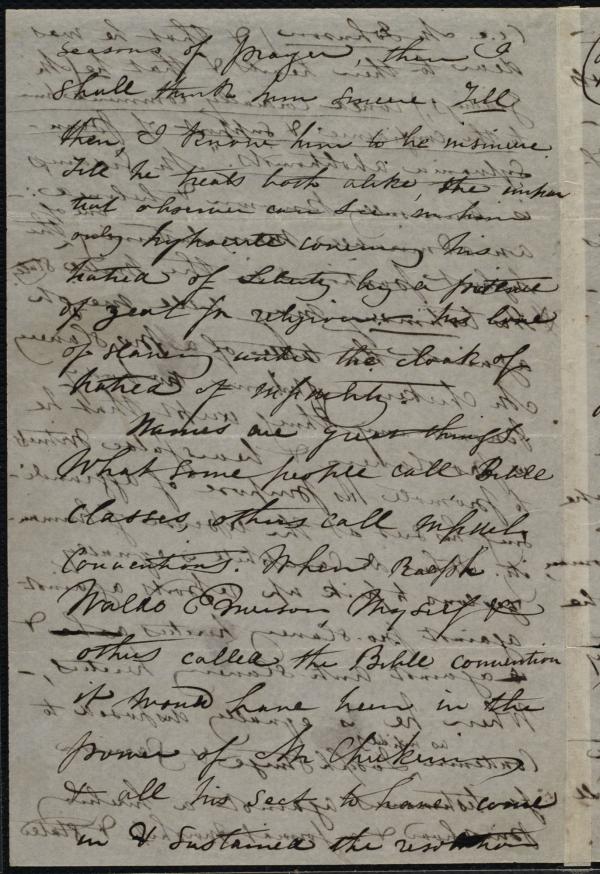 seasons of Prayer, then I
shall think him sincere. Till
then, I know him to be insincere
Till he treats both alike, the impar
tial observer can see in him
only hypocrite covering his
hatred of Liberty by a pretence
of zeal for religion — his love
of slavery under the cloak of
hatred of infidelity.
Names are great things.
What some people call Bible
classes, others call infidel
Conventions. When Ralph
Waldo Emerson Myself &
others called the Bible convention
it would have been in the
power of Mr
& all his sect to have come
in & sustained the